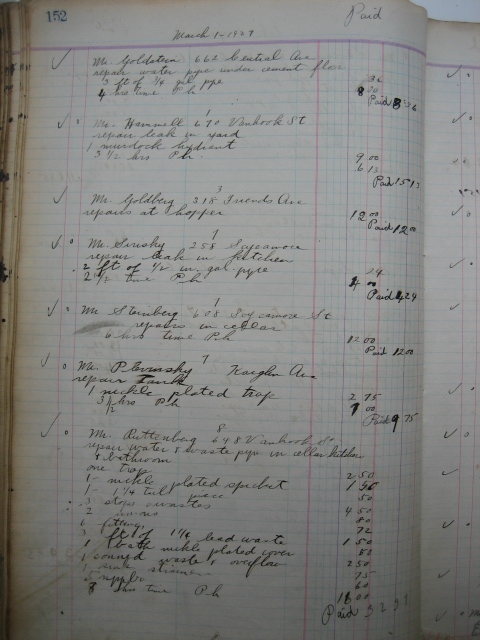 152
Paid
March 1-1927
Mr. Goldstein 662 Central Ave
repair water pipe under cement floor
3 ft of 3/4 gal pipe 36
4 hrs time Ph 8 00
Paid 8 36
1
Mr. Hammelt 670 Vanhook St
repair leak in yard
1 murdock hydrant 9 00
3 1/2 hrs Ph. 6 13
Paid 15 13
3
Mr. Goldberg 218 Friends Ave
repairs at hopper 12 00
Paid 12 00
1
Mr. Sinsky 258 Sycamore
repair leak in kitchen
2 ft of 1/2 in gal pipe 24
2 1/2 time Ph 4 00
Paid 4 24
1
Mr. Steinberg 608 Sycamore St
repairs in cellar
6 hrs time Ph 12 00
Paid 12 00
7
Mr. Plevinsky Kaighn Ave
repair Tank
1 nickle plated trap 2 75
3 1/2 hrs Ph 7 00
Paid 9 75
8
Mr. Ruttenberg 648 Vanhook St
repair water & waste pipe in cellar kitchen
& bathroom
one trap 2 50
1 nickle plated spicket 1 50
1 1 1/4 tail piece 50
3 stops wastes 4 50
2 80
6 fittings 72
3 ft of 1 1/4 lead waste 1 50
1 bath nickle plated cover 80
1 waste & overflow 2 50
1 strainer 75
60
8 hrs time Ph 16 00
Paid